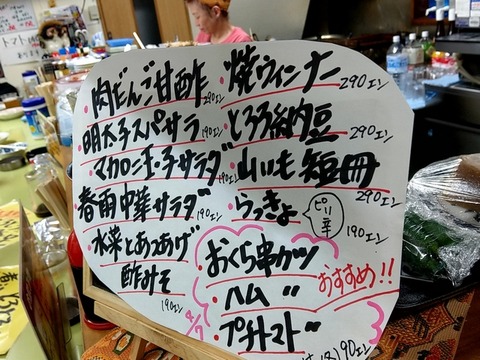 ・肉だんご甘酢 290エン
・明太子スパサラ 190エン
・マカロニ玉子サラダ 190エン
春雨中華サラダ 190エン
・水菜とあつあげ
酢みそ
190エン
・焼ウィンナー
290エン
・とろろ納豆
290エン
・山いも短冊
290エン
・らっきょ
ピリ辛
190エン
おくら串カツ
ハム〃
プチトマト〃
おすすめ!!
190エン